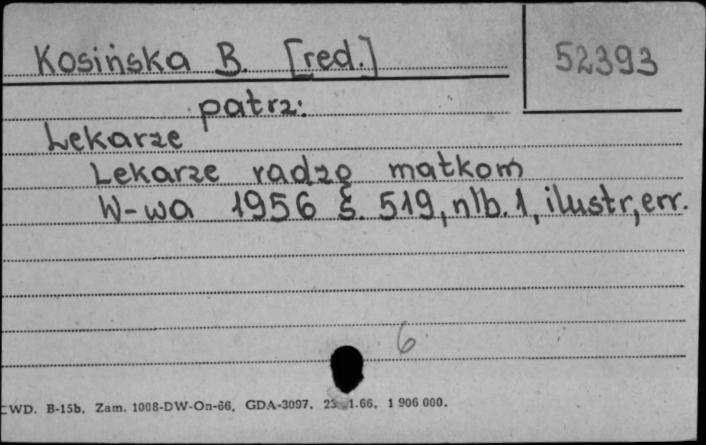 Kosińska B. [red.]
52393
patrz:
Lekarze
Lekarze radzą matkom
W-wa 1956 s. 519, nlb. 1, ilustr, err.
6
CWD. B-15b. Zam. 1008-DW-On-66. GDA-3097. 1.66. 1 906 000.